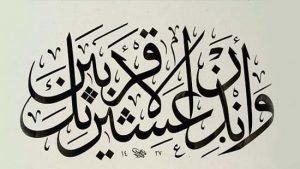 وَأَنذِرْ عَشِيرَتَكَ الْأَقْرَبِينَ
١٤ ٢٧